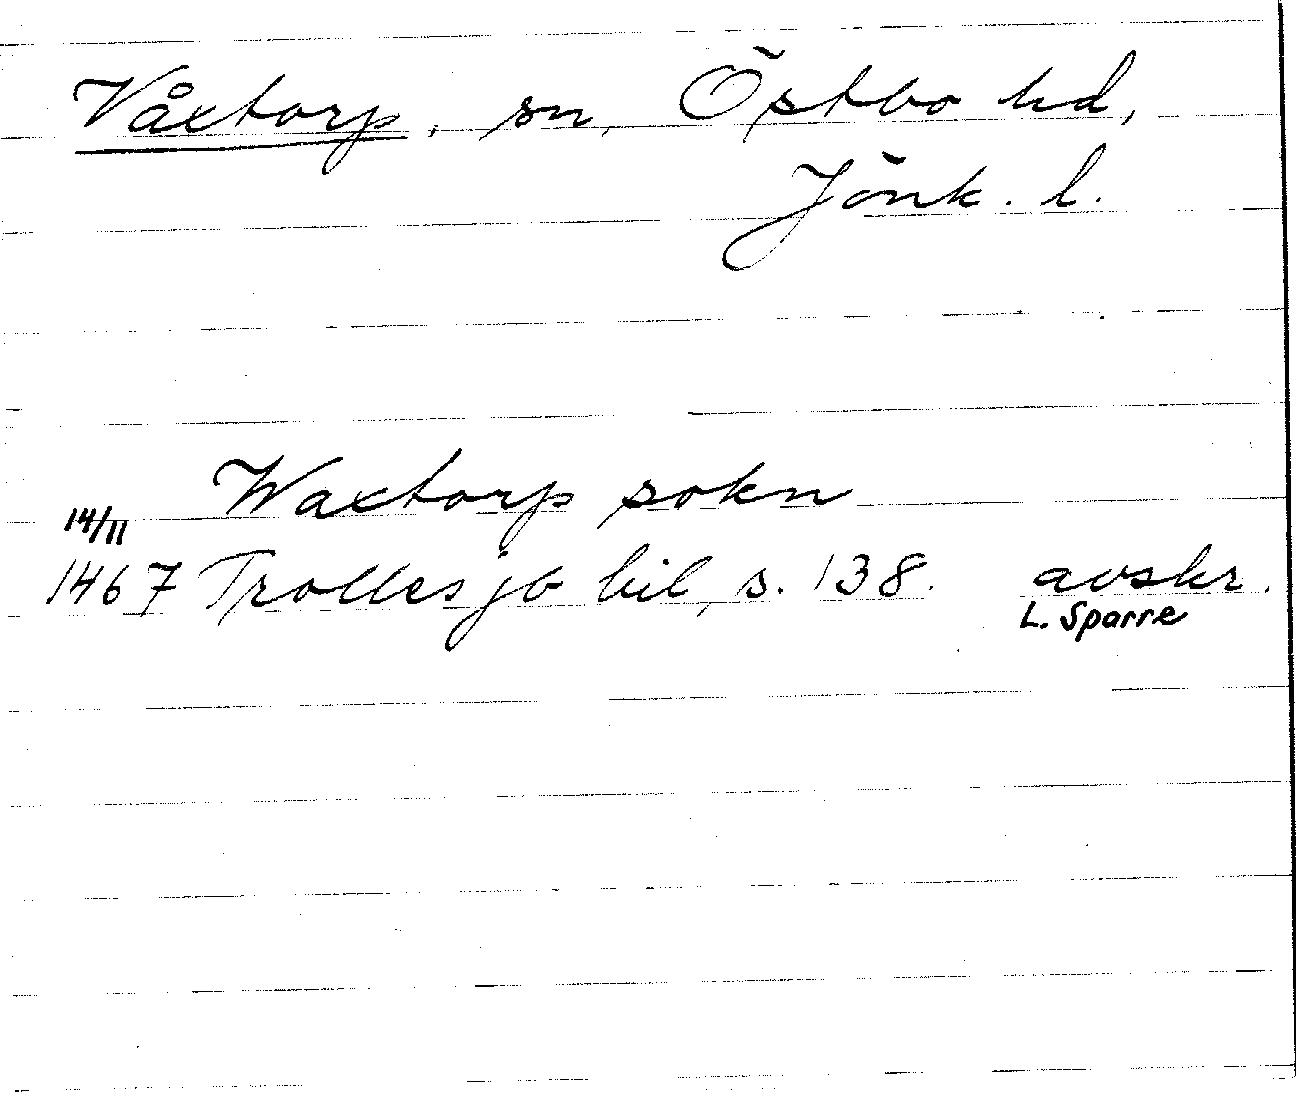 Våxtorp, sn, Östbo hd,
Jönk. l.
Waxtorp sokn
14/11
1467 Trolles jb bil, s. 138. avskr.
L. Sparre